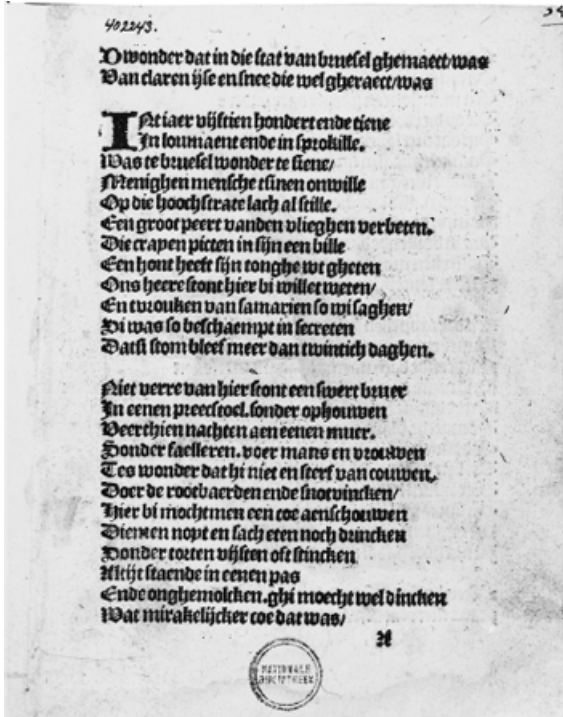 402243.
34
Dwonder dat in die stat van bruesel ghemaect/was
Van claren ijse en snee die wel gheraect/was
INt iaer vijftien hondert ende tiene
In loumaent ende in sprokille.
Was te bruesel wonder te siene/
Menighen mensche tsinen onwille
Op die hoochstrate lach al stille.
Een groot peert vanden vlieghen verbeten.
Die crayen picten in sijn een bille
Een hont heeft sijn tonghe wt gheten
Ons heere stont hier bi willet weten/
En tvrouken van samarien so wi saghen/
Hi was so beschaempt in secreten
Datsi stom bleef meer dan twintich daghen.
Niet verre van hier stont een swert bruer
In eenen preecstoel. sonder ophouwen
Veerthien nachten aen eenen muer.
Sonder faelleren. voer mans en vrouwen
Tes wonder dat hi niet en sterf van couwen.
Doer de rootbaerden ende snotvincken/
Hier bi mochtmen een coe aenschouwen
Diemen noyt en sach eten noch drincken
Sonder torten vijsten oft stincken
Altijt staende in eenen pas
Ende onghemolcken. ghi moecht wel dincken
Wat mirakelijcker coe dat was/
A
NATIONALE
BIBLIOTHEEK